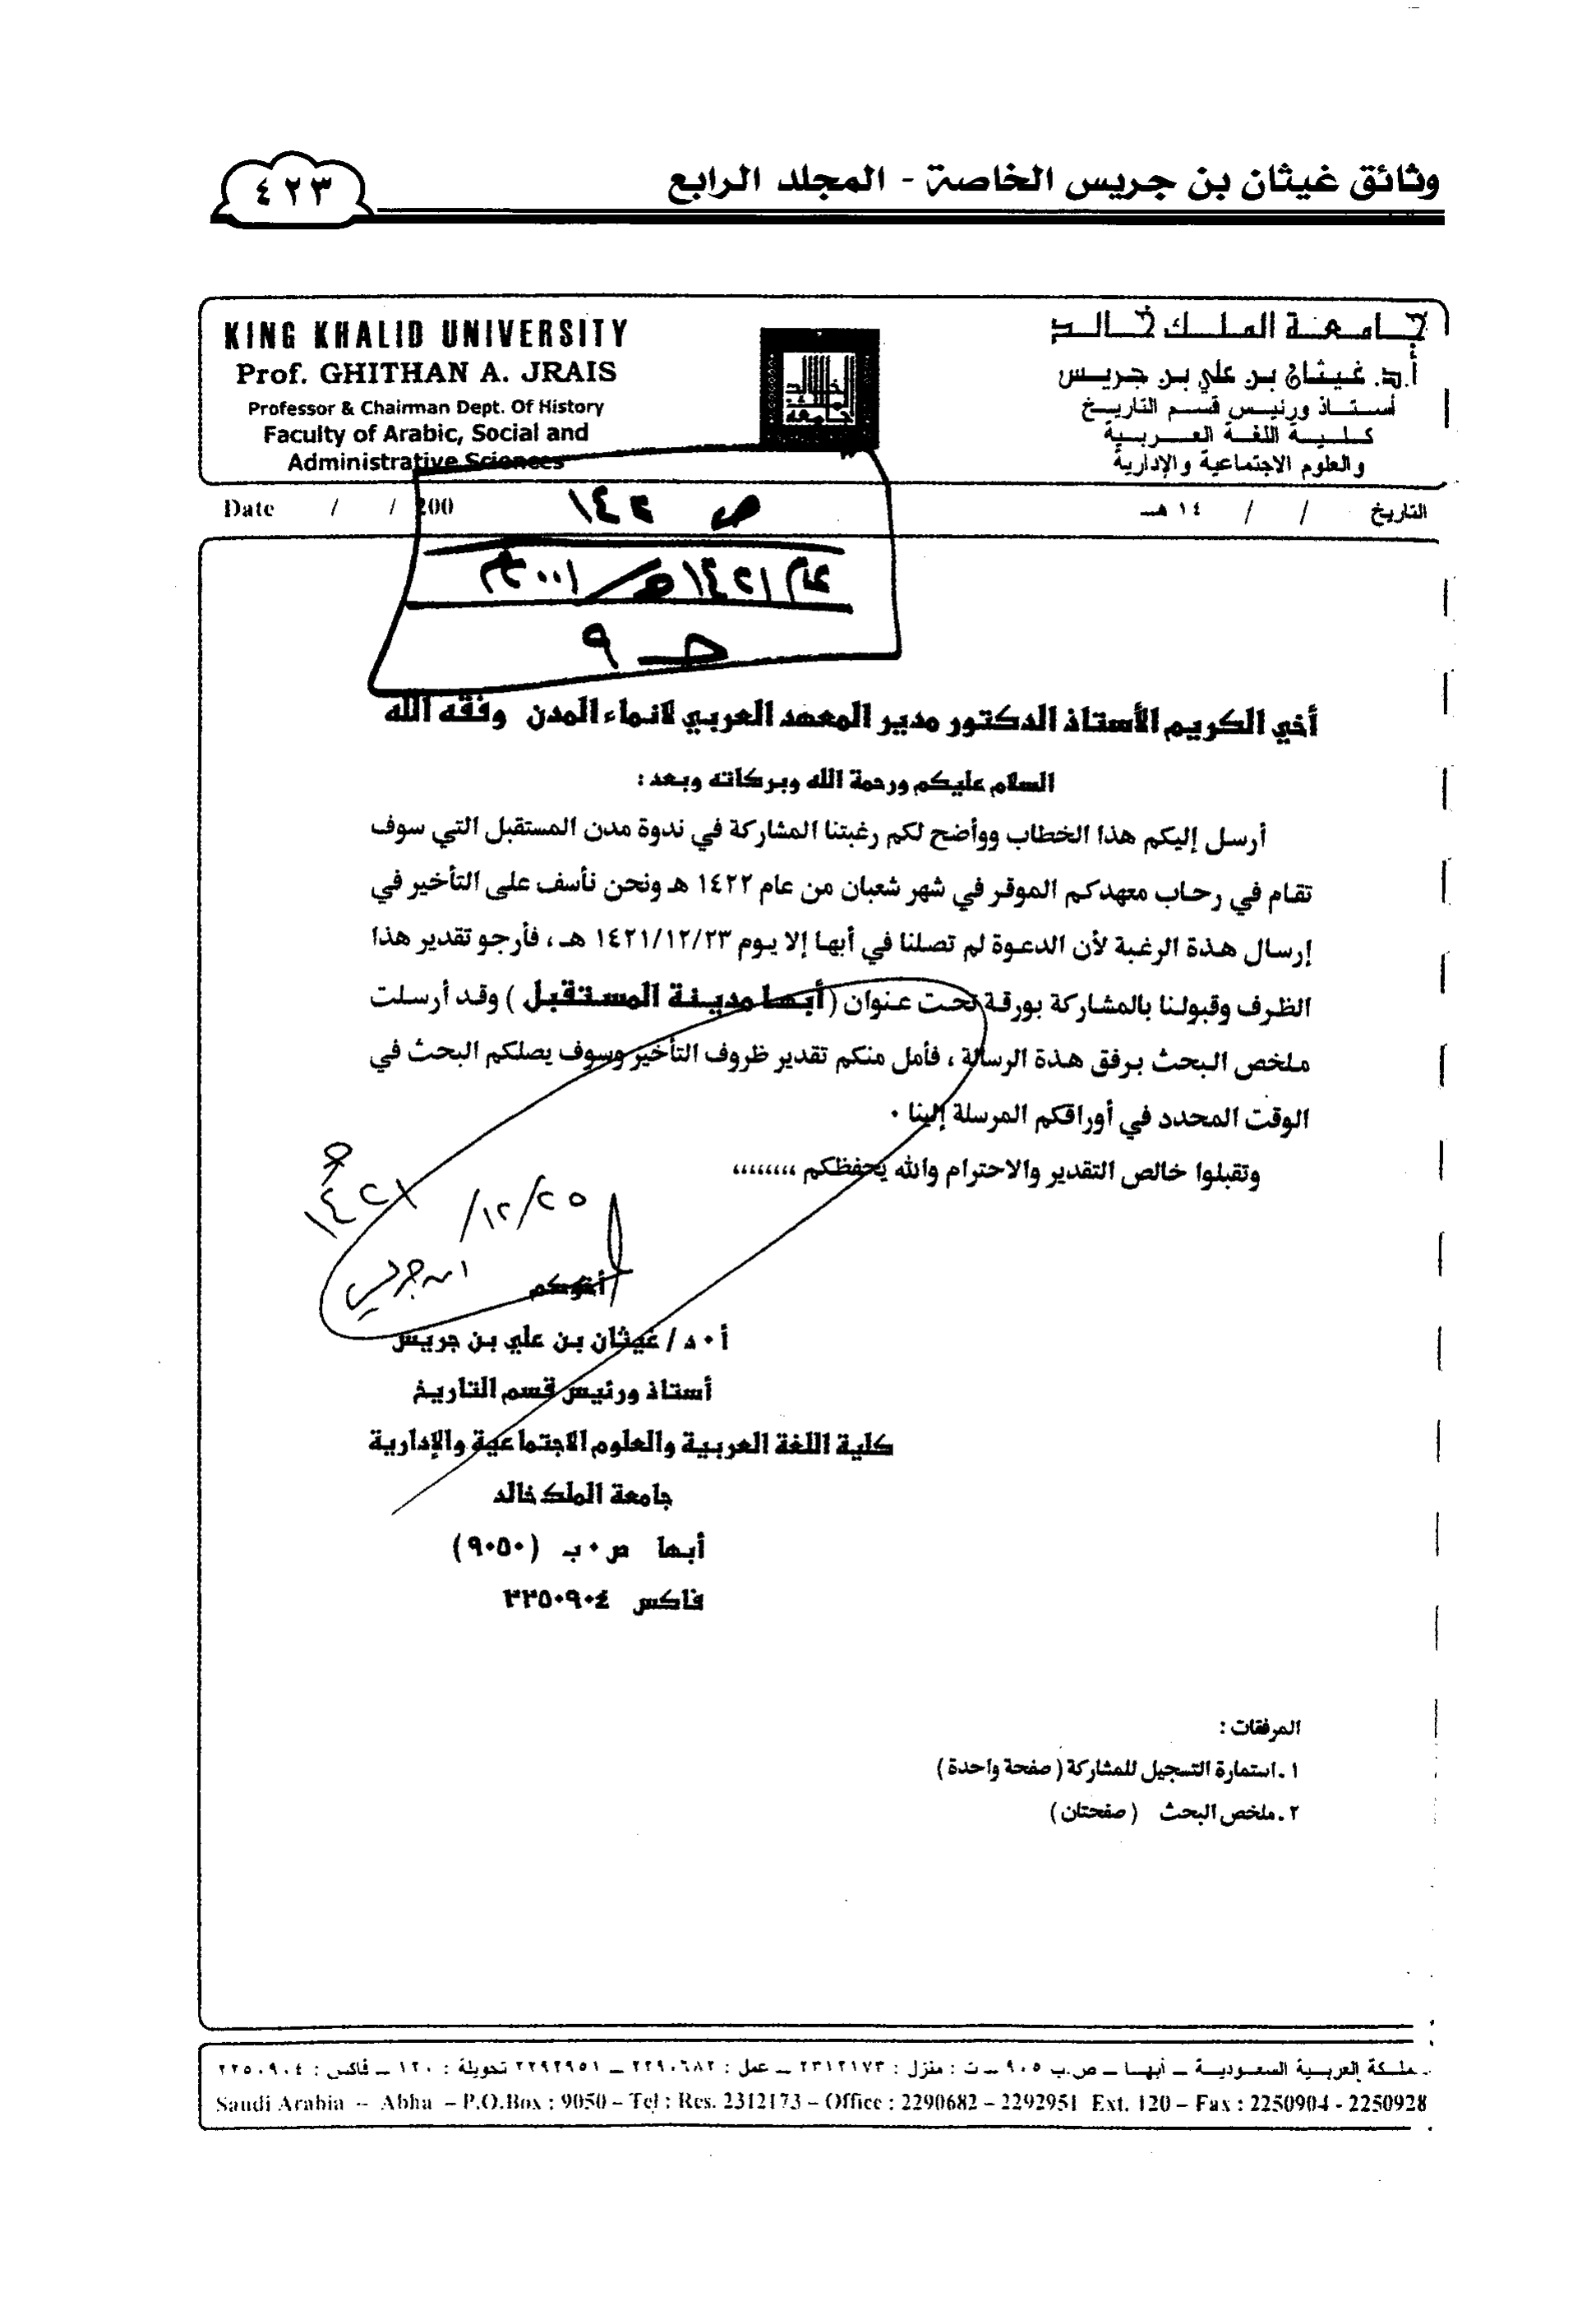 وثائق غيثان بن جريس الخاصة - المجلد الرابع
٤٢٣
KING KHALID UNIVERSITY
Prof. GHITHAN A. JRAIS
Professor & Chairman Dept. Of History
Faculty of Arabic, Social and
Administrative Sciences
جامعة الملك خالد
أ.د. غيثان بن علي بن جريس
أستاذ ورئيس قسم التاريخ
كلية اللغة العربية
والعلوم الاجتماعية والإدارية
Date / / 200
التاريخ / / ١٤ هـ
ص ١٤٢
عام ١٤٢١هـ/٢٠٠١م
حـ ٩
أخي الكريم الأستاذ الدكتور مدير المعهد العربي لانماء المدن وفقه الله
السلام عليكم ورحمة الله وبركاته وبعد :
أرسل إليكم هذا الخطاب ووأضح لكم رغبتنا المشاركة في ندوة مدن المستقبل التي سوف
تقام في رحاب معهدكم الموقر في شهر شعبان من عام ١٤٢٢ هـ ونحن نأسف على التأخير في
إرسال هذة الرغبة لأن الدعوة لم تصلنا في أبها إلا يوم ١٤٢١/١٢/٢٣ هـ ، فأرجو تقدير هذا
الظرف وقبولنا بالمشاركة بورقة تحت عنوان (أبها مدينة المستقبل ) وقد أرسلت
ملخص البحث برفق هذة الرسالة ، فأمل منكم تقدير ظروف التأخير وسوف يصلكم البحث في
الوقت المحدد في أوراقكم المرسلة إلينا ٠
وتقبلوا خالص التقدير والاحترام والله يحفظكم ،،،،،،،،
٢٥/١٢/ ١٤٢١هـ
ابن جريس
أخوكم
أ ٠ د / غيثان بن علي بن جريس
أستاذ ورئيس قسم التاريخ
كلية اللغة العربية والعلوم الاجتماعية والإدارية
جامعة الملك خالد
أبها ص ٠ ب (٩٠٥٠)
فاكس ٢٢٥٠٩٠٤
المرفقات :
١ .استمارة التسجيل للمشاركة ( صفحة واحدة )
٢ .ملخص البحث ( صفحتان )
ملكة العربية السعودية – أبها – ص.ب ٩٠٥ – ت : منزل : ٢٣١٢١٧٣ – عمل : ٢٢٩٠٦٨٢ – ٢٢٩٢٩٥١ تحويلة : ١٢٠ – فاكس : ٢٢٥٠٩٠٤
Saudi Arabia – Abha – P.O.Box : 9050 – Tel : Res. 2312173 – Office : 2290682 – 2292951 Ext. 120 – Fax : 2250904 - 2250928